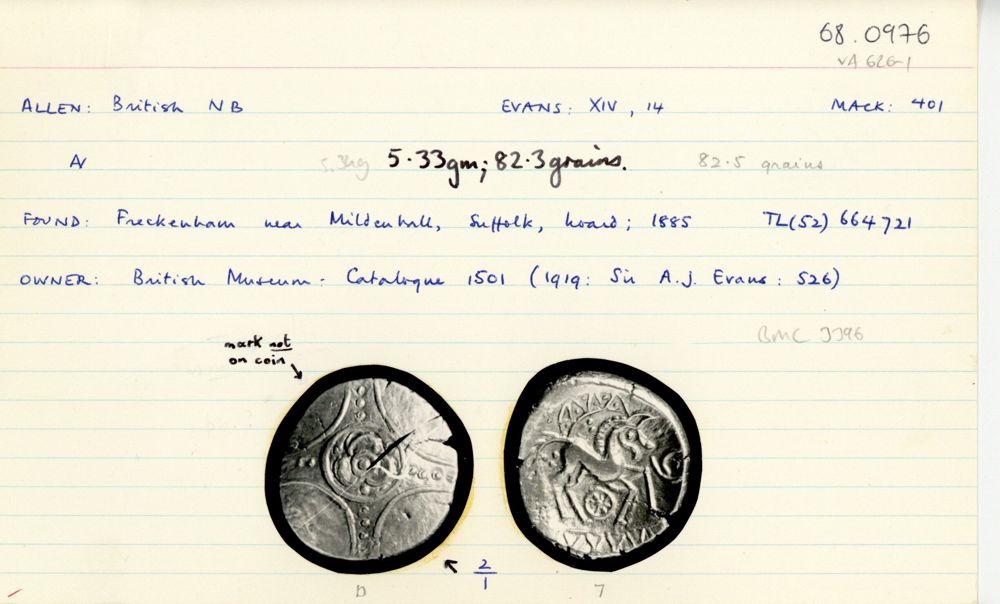 68.0976
VA 626-1
ALLEN: British NB EVANS: XIV, 14 MACK: 401
AV 5.34g 5.33gm; 82.3grains. 82.5 grains
FOUND: Freckenham near Mildenhall, Suffolk, hoard; 1885 TL(52) 664721
OWNER: British Museum: Catalogue 1501 (1919: Sir A.J. Evans: 526)
BMC 3396
mark not
on coin
2
1
D 7